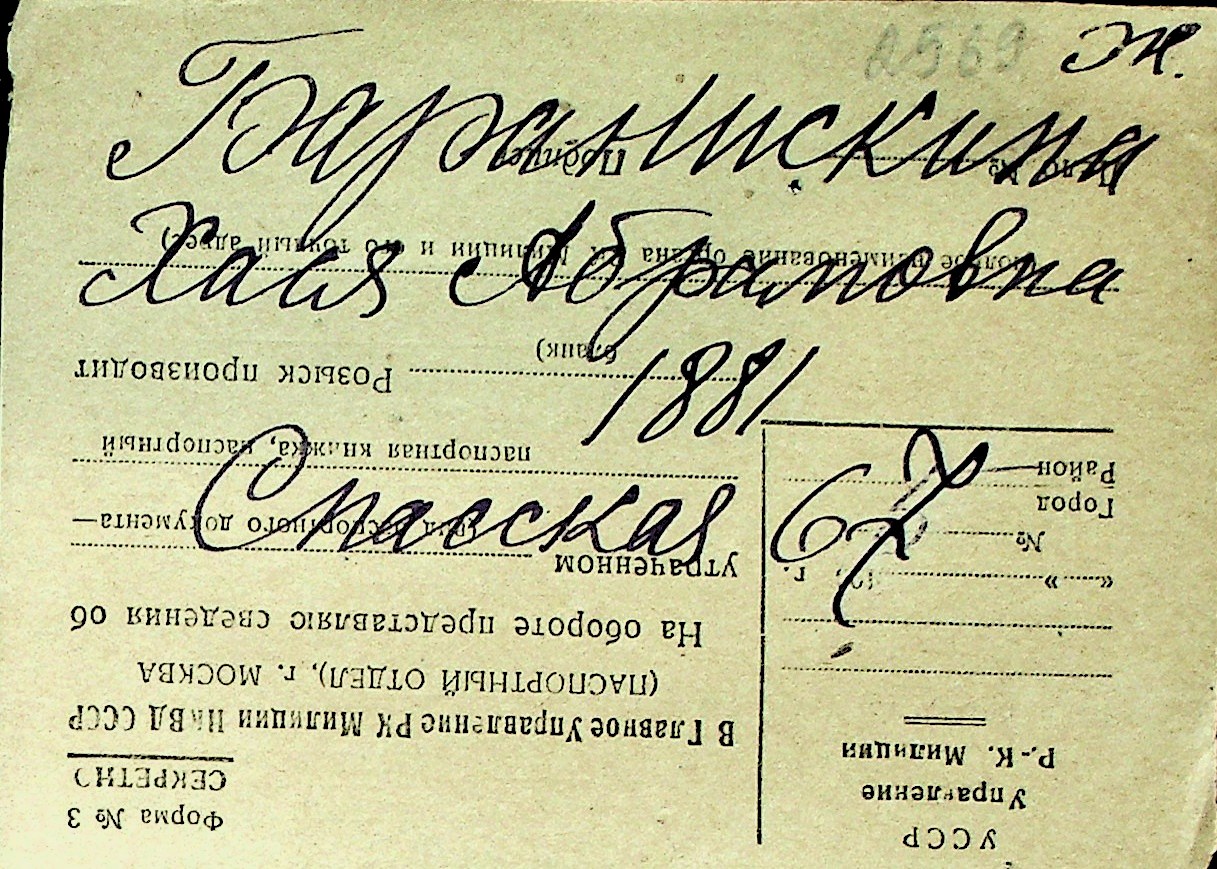 2569 Ж.
Баранискина
Хася Абрамовна
1881
Спасская 67
Форма № 3
СЕКРЕТНО
В Главное Управление РК Милиции НКВД СССР
(ПАСПОРТНЫЙ ОТДЕЛ), г. МОСКВА
На обороте представляю сведения об
утраченном
(вид паспортного документа—
паспортная книжка, паспортный
бланк)
Розыск производит
(полное наименование органа РК Милиции и его точный адрес)
Дело № Подпись
УССР
Управление
Р.-К. Милиции
« » 193 г.
№
Город
Район